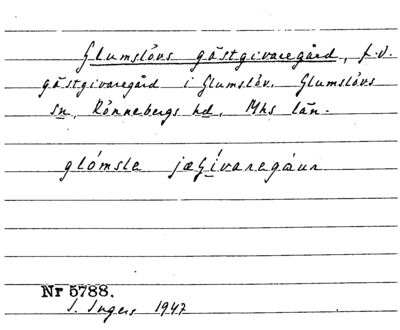 Glumslövs gästgivaregård, f.d.
gästgivaregård i Glumslöv, Glumslövs
sn, Rönnebergs hd, Mhs län.
glómsle jæſívaregáur
Nr 5788.
I. Ingers 1947